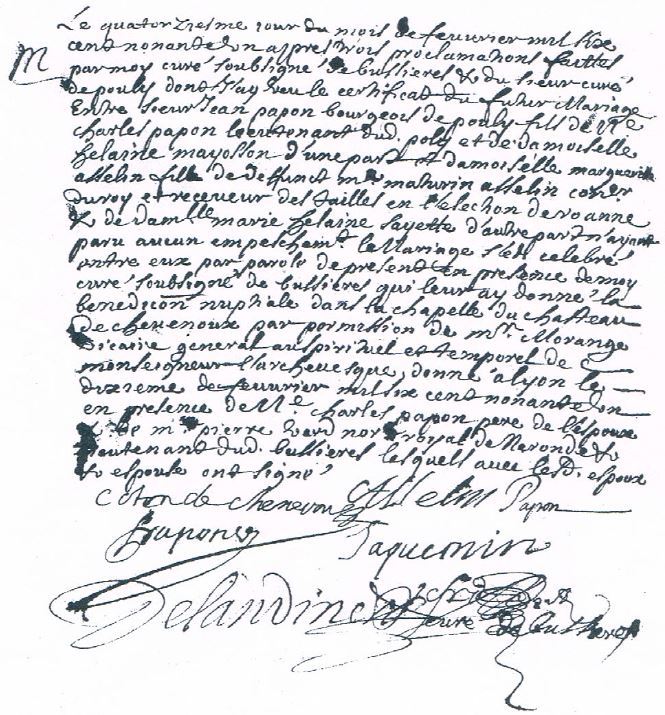 Le quatorziesme jour du mois de feuvrier mil six
cent nonante un apres trois proclamations faittes
M par moy curé soubsigné de bussieres & du sieur curé
de pouly dont j'ay veu le certificat du futur Mariage
Entre sieur Jean papon bourgeois de pouly fils de Me
charles papon lieutenant dud. poly et de damoiselle
helaine mayosson d'une part et damoiselle marguerite
asselin fille de deffunct mr mathurin asselin coner
du roy et receveur des tailles en l'election de roanne
& de damlle marie helaine fayette d'autre part n'ayant
paru aucun empeschemt. le Mariage s'est celebré
entre eux par parole de present en presence de moy
curé soubsigné de bussieres qui leur ay donné la
benedicon nuptiale dans la chapelle du chatteau
de chevenoux par permission de mr. Morange
vicaire general au spirituel et temporel de
monseigneur l'archevesque, donné a lyon le
dixieme de feuvrier mil six cent nonante un
en presence de Me. charles papon pere de l'espoux
& de mr pierre verd nore royal de Neronde &
lieutenant dud. bussieres lesquels avec lesd. espoux
& espouse ont signé
Coton de Chenevoux Asselin Papon
Papon
Jaquemin
Delandine
curé de bussieres